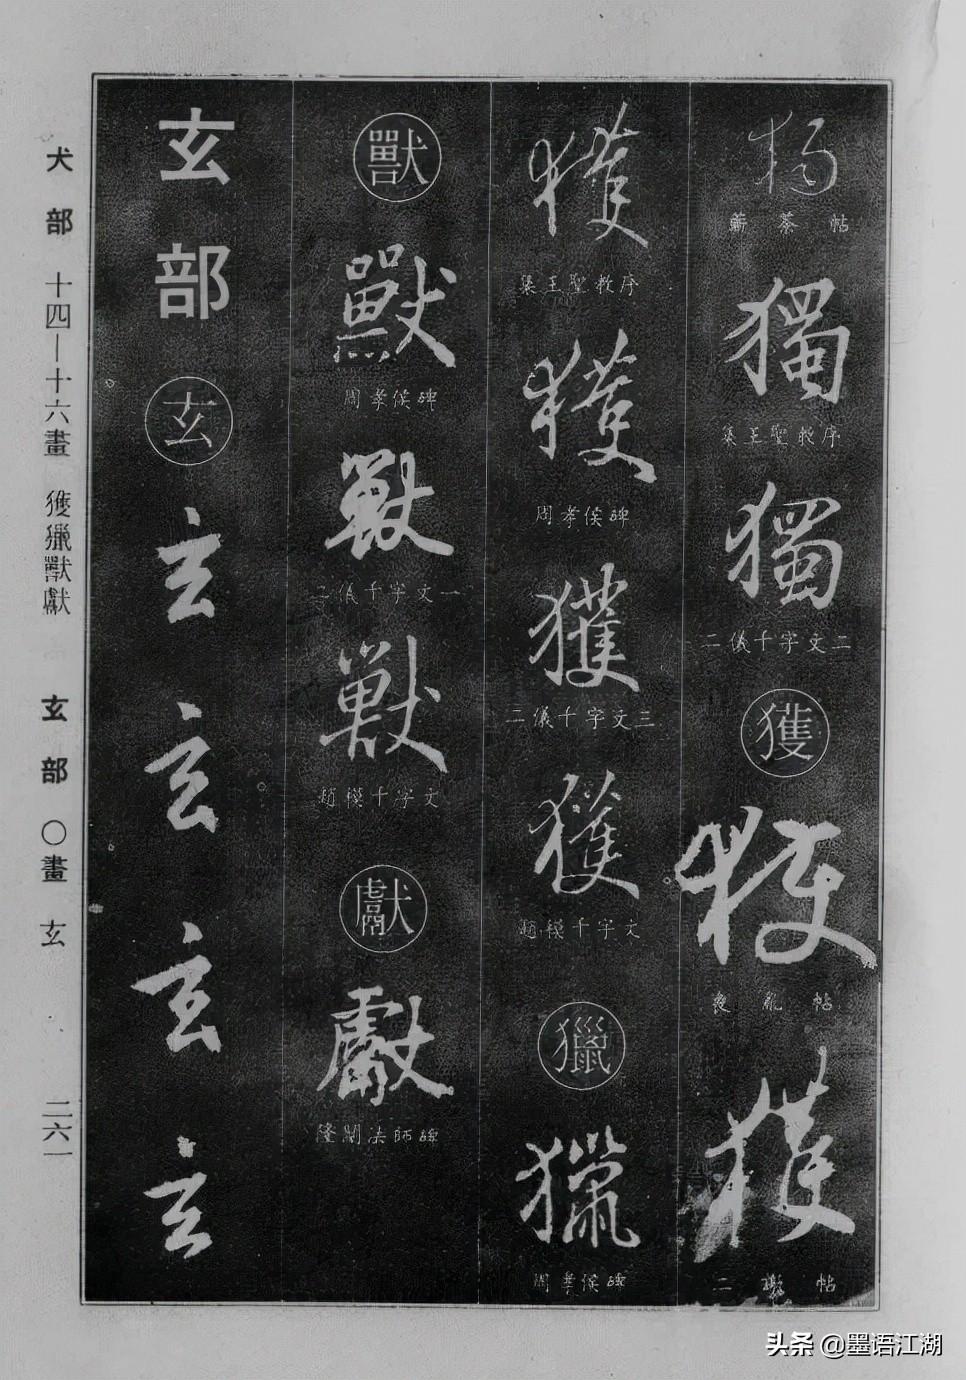 獨
蘄茶帖
獨
集王聖教序
獨
二儀千字文二
獲
獲
喪亂帖
獲
二謝帖
獲
集王聖教序
獲
周孝侯碑
獲
二儀千字文三
獲
趙模千字文
獵
獵
周孝侯碑
獸
獸
周孝侯碑
獸
二儀千字文一
獸
趙模千字文
獻
獻
隆闡法師碑
玄部
玄
玄
玄
玄
玄
犬部 十四—十六畫 獲獵獸獻 玄部 〇畫 玄 二六一
头条 @墨语江湖